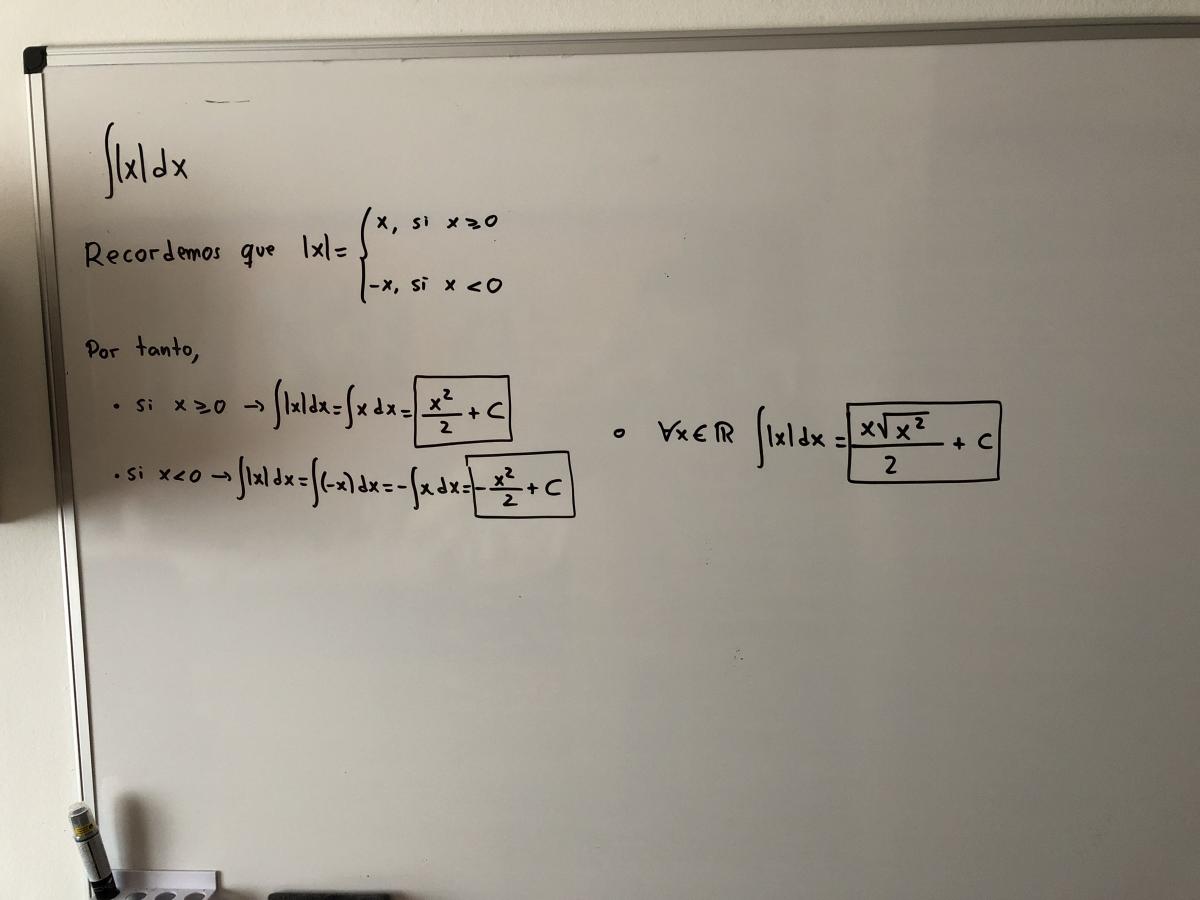 ∫|x|dx
Recordemos que |x| = { x, si x ≥ 0
-x, si x < 0
Por tanto,
• si x ≥ 0 → ∫|x|dx = ∫x dx = x²/2 + C
• si x < 0 → ∫|x|dx = ∫(-x)dx = -∫x dx = -x²/2 + C
∘ ∀x∈ℝ ∫|x|dx = x√x²/2 + C